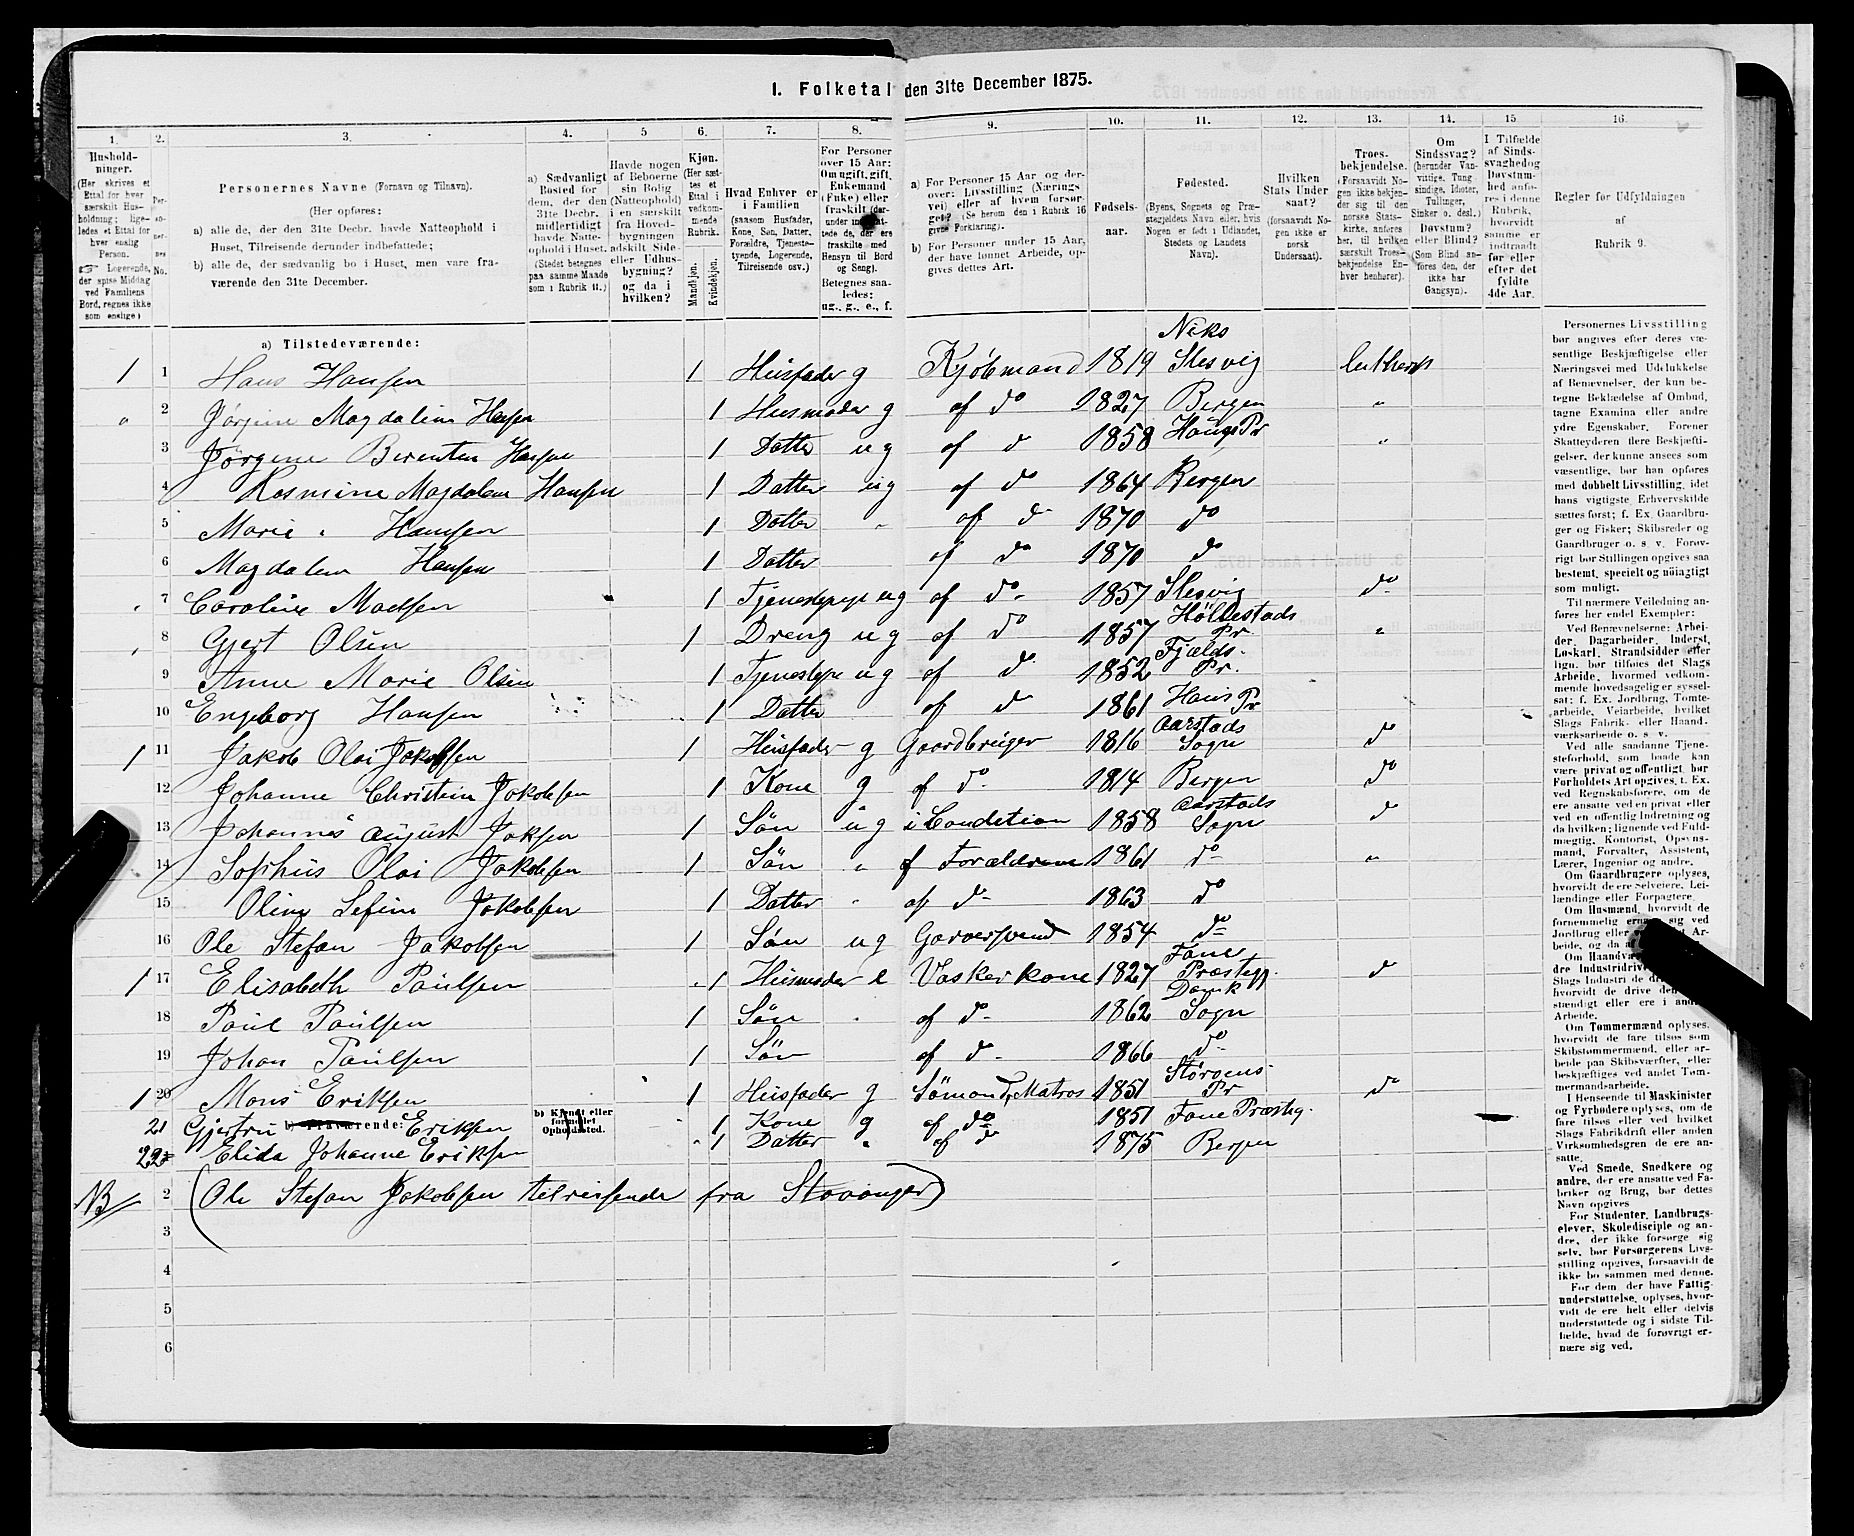 1. Folketal den 31te December 1875.
1. 2. 3. 4. 5 6. 7. 8. 9. 10. 11. 12. 13. 14. 15 16.
Husholdninger. (Her skrives et Ettal for hver særskilt Husholdning; ligeledes et Ettal for hver enslig Person. ☞ Logerende, der spise Middag ved Familiens Bord, regnes ikke som enslige)
Personernes No.
Personernes Navne (Fornavn og Tilnavn).
(Her opføres:
a) alle de, der den 31te Decbr. havde Natteophold i Huset, Tilreisende derunder indbefattede;
b) alle de, der sædvanlig bo i Huset, men vare fraværende den 31te December.
a) Sædvanligt Bosted for dem, der den 31te Decbr. midlertidigt havde Natteophold i Huset. (Stedet betegnes paa samme Maade som i Rubrik 11.)
Havde nogen af Beboerne sin Bolig (Natteophold) i en særskilt fra Hovedbygningen adskilt Side- eller Udhusbygning? og da i hvilken?
Kjøn. (Her sættes et Ettal i vedkommende Rubrik.
Mandkjøn. Kvindekjøn.
Hvad Enhver er i Familien (saasom Husfader, Kone, Søn, Datter, Forældre, Tjenestetyende, Logerende, Tilreisende osv.)
For Personer over 15 Aar: Om ugift, gift, Enkemand (Enke) eller fraskilt (derunder indbefattede de, der ere fraskilte med Hensyn til Bord og Seng). Betegnes saaledes; ug., g., e., f.
a) For Personer 15 Aar og derover: Livsstilling (Næringsvei) eller af hvem forsørget? (Se herom den i Rubrik 16 givne Forklaring).
b) For Personer under 15 Aar, der have lønnet Arbeide, opgives dettes Art.
Fødselsaar.
Fødested. (Byens, Sognets og Præstegjeldets Navn eller, hvis Nogen er født i Udlandet, Stedets og Landets Navn).
Hvilken Stats Undersaat? (forsaavidt Nogen ikke er norsk Undersaat).
Troesbekjendelse. (Forsaavidt Nogen ikke bekjender sig til den norske Statskirke, anføres her, til hvilken særskilt Troesbekjendelse Enhver henhører).
Om Sindssvag? (herunder Vanvittige, Tungsindige, Idioter, Tullinger, Sinker o. desl.) Døvstum? eller Blind? (Som Blind anføres den, der ikke har Gangsyn).
I Tilfælde af Sindssvaghed og Døvstumhed anføres i denne Rubrik, hvorvidt samme er indtraadt før eller efter det fyldte 4de Aar.
Regler for Udfyldningen af Rubrik 9.
a) Tilstedeværende:
1 1 Hans Hansen 1 Husfader g Kjöbmand 1819 Slesvig luthersk
2 Jørgine Magdalene Hansen 1 Husmoder g af do 1827 Bergen "
3 Jörgine Berentin Hansen 1 Datter ug af d 1858 Hougs Pr "
4 Rasmine Magdalene Hansen 1 Datter ug af do 1864 Bergen
5 Marie " Hansen 1 Datter " af d 1870 do
6 Magdalene Hansen 1 Datter af do 1870 do
7 Caroline Madsen 1 Tjenestepige ug af do 1857 Slesvig do
8 Gjert Olsen 1 Dreng ug af do 1857 Pr "
9 Anne Marie Olsen 1 Tjenestepe ug af do 1852 Fjælds Pr.
10 Engeborg Hansen 1 Datter af do 1861 Hous Pr
1 11 Jakob Olai Jakobsen 1 Husfader g Gaardbruger 1816 Aarstads Sogn do
12 Johanne Christine Jakobsen 1 Kone g af do 1814 Bergen do
13 Johannes August Jaksen 1 Sön ug i Condition 1858 Aarstads Sogn d
14 Sophus Olai Jakobsen 1 Sön " af Forældrene 1861 do "
15 Oline Sefine Jakobsen 1 Datter " af do 1863 do
16 Ole Stefan Jakobsen 1 Sön ug Garversvend 1854 do
1 17 Elisabeth Paulsen 1 Husmoder e Vaskerkone 1827 Fane Præstegj. d
18 Paul Paulsen 1 Sön " af do 1862 Domk Sogn
19 Johan Paulsen 1 Sön af do 1866 do
1 20 Mons Eriksen 1 Husfader g Sömand, Matros 1851 Pr do
b) Fraværende: b) Kjendt eller formodet Opholdssted.
21 Gjertru Eriksen 1 Kone g af do 1851 Fane Præsteg.
22 Elida Johanne Eriksen 1 Datter " af do 1875 Bergen
NB 2 (Ole Stefan Jakobsen tilreisende fra Stavanger)
3
4
5
6
Personernes Livsstilling
bør angives efter deres væ-
sentlige Beskjæftigelse eller
Næringsvei med Udelukkelse
af Benævnelser, der kun be-
tegne Beklædelse af Ombud,
tagne Examina eller andre
ydre Egenskaber. Forener
Skatteyderen flere Beskjæfti-
gelser, der kunne ansees som
væsentlige, bør han opføres
med dobbelt Livsstilling, idet
hans vigtigste Erhvervskilde
sættes først; f. Ex. Gaardbru-
ger og Fisker; Skibsreder og
Gaardbruger o. s. v. Forøv-
rigt bør Stillingen opgives saa
bestemt, specielt og nöiagtigt
som muligt.
Til nærmere Veiledning an-
føres her endel Exempler:
Ved Benævnelserne: Arbei-
der, Dagarbeider, Inderst,
Løskarl, Strandsidder eller
lign. bør tilføies det Slags
Arbeide, hvormed vedkom-
mende hovedsagelig er syssel-
sat; f. Ex. Jordbrug, Tømte-
arbeide, Veiarbeide, hvilket
Slags Fabrik- eller Haand-
værksarbeide o. s. v.
Ved alle saadanne Tjene-
steforhold, som baade kan
være privat og offentligt, bør
Forholdets Art opgives, t. Ex.
ved Regnskabsførere, om de
ere ansatte ved en privat eller
ved en offentlig Indretning og
da hvilken; lignende ved Fuld-
mægtig, Kontorist, Opsyns-
mand, Forvalter, Assistent,
Lærer, Ingeniør og andre.
Om Gaardbrugere oplyses,
hvorvidt de ere Selveiere, Lei-
lændinge eller Forpagtere.
Om Husmænd, hvorvidt de
fornemmelig ernære sig ved
Jordbrug eller
beide, og da
Om
dre Industridri
Slags Industri de
hvorvidt de drive
stændigt eller ere i
Arbeide.
Om Tømmermænd oplyses,
hvorvidt de fare tilsøs som
Skibstømmermænd, eller ar-
beide paa Skibsværfter, eller
beskjæftiges ved andet Tøm-
mermandsarbeide.
I Henseende til Maskinister
og Fyrbødere oplyses, om de
fare tilsøs eller ved hvilket
Slags Fabrikdrift eller anden
Virksomhedsgren de ere an-
satte.
Ved Smede, Snedkere og
andre, der ere ansatte ved Fa-
briker og Brug, bør dettes
Navn opgives
For Studenter, Landbrugs-
elever, Skoledisciple og an-
dre, der ikke forsørge sig
selv, bør Forsørgerens Livs-
stilling opgives, forsaavidt de
ikke bo sammen med denne.
For dem, der have Fattig-
understøttelse, oplyses, hvor-
vidt de ere helt eller delvis
understøttede og i sidste Til-
fælde, hvad de forøvrigt er-
nære sig ved.